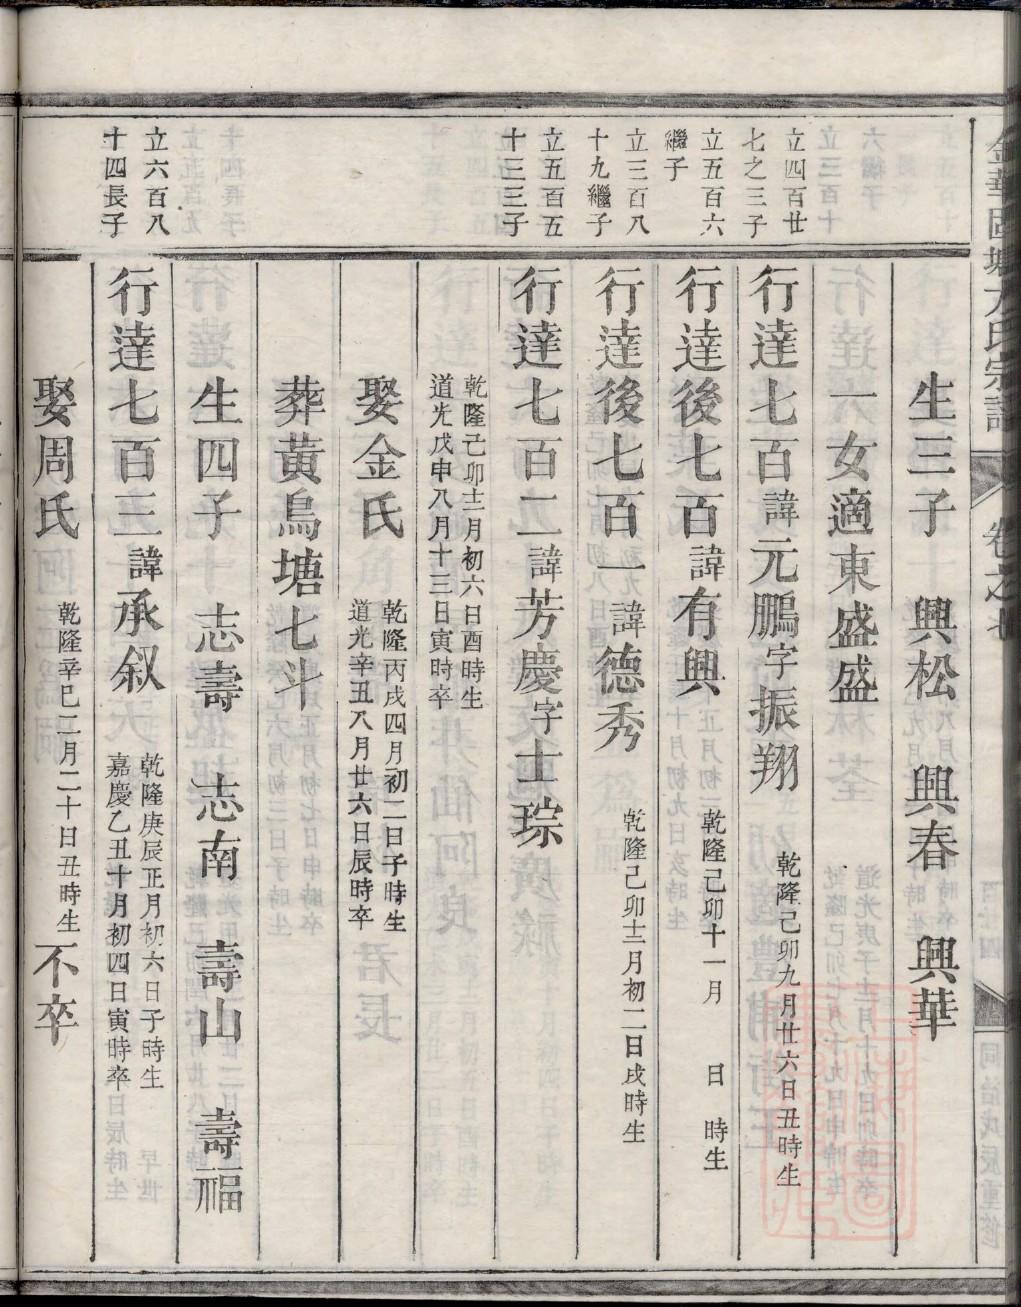 金華
方氏宗譜
卷之七
生三子 興松 興春 興華
一女適東盛盛
立四百廿
七之三子
行達七百諱元鵬字振翔 乾隆己卯九月廿六日丑時生
立五百六
繼子
行達後七百諱有興 乾隆己卯十一月 日 時生
立三百八
十九繼子
行達後七百一諱德秀 乾隆己卯十二月初二日戌時生
立五百五
十三三子
行達七百二諱芳慶字士琮
乾隆己卯十二月初六日酉時生
道光戊申八月十三日寅時卒
娶金氏
乾隆丙戌四月初二日子時生
道光辛丑八月廿六日辰時卒
葬黃烏塘七斗
生四子 志壽 志南 壽山 壽福
立六百八
十四長子
行達七百三諱承叙
乾隆庚辰正月初六日子時生
嘉慶乙丑十月初四日寅時卒
娶周氏 乾隆辛巳二月二十日丑時生 不卒